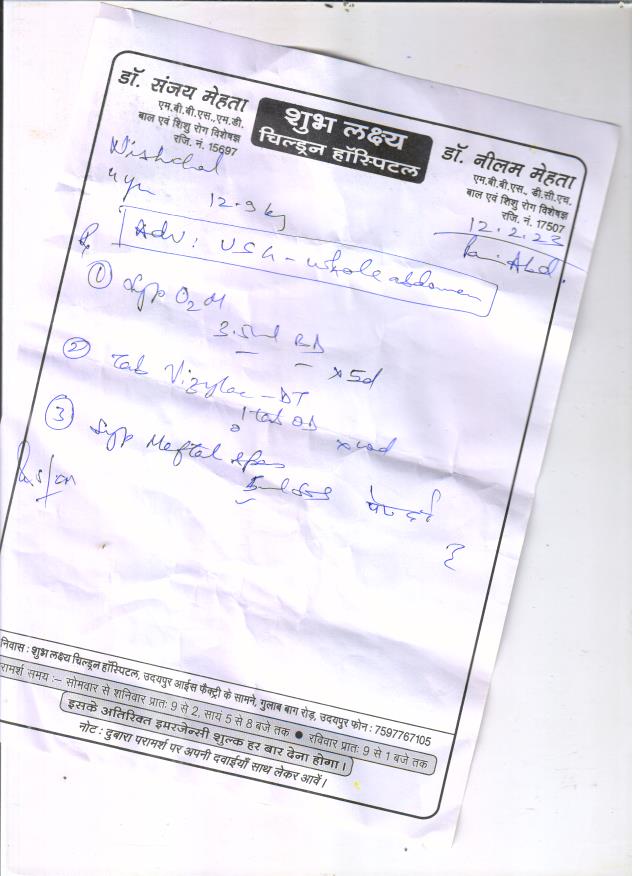 डॉ. संजय मेहता
एम.बी.बी.एस., एम.डी.
बाल एवं शिशु रोग विशेषज्ञ
रजि. नं. 15697
शुभ लक्ष्य
चिल्ड्रन हॉस्पिटल
डॉ. नीलम मेहता
एम.बी.बी.एस., डी.सी.एम.
बाल एवं शिशु रोग विशेषज्ञ
रजि. नं. 17507
Nishchal
4 yr
12.9 kg
12.2.23
Pain Abd.
Rx
Adv: USG - whole abdomen
① Syp O2 M
3.5ml BD
x 5d
② Tab Vizylac - DT
1 tab OD
x 10d
③ Syp Meftal spas
5ml SOS
पेट दर्द
निवास : शुभ लक्ष्य चिल्ड्रन हॉस्पिटल, उदयपुर आईस फैक्ट्री के सामने, गुलाब बाग रोड़, उदयपुर फोन : 7597767105
रामर्श समय :– सोमवार से शनिवार प्रातः 9 से 2, सायं 5 से 8 बजे तक ● रविवार प्रातः 9 से 1 बजे तक
इसके अतिरिक्त इमरजेन्सी शुल्क हर बार देना होगा।
नोट : दुबारा परामर्श पर अपनी दवाईयाँ साथ लेकर आवें।